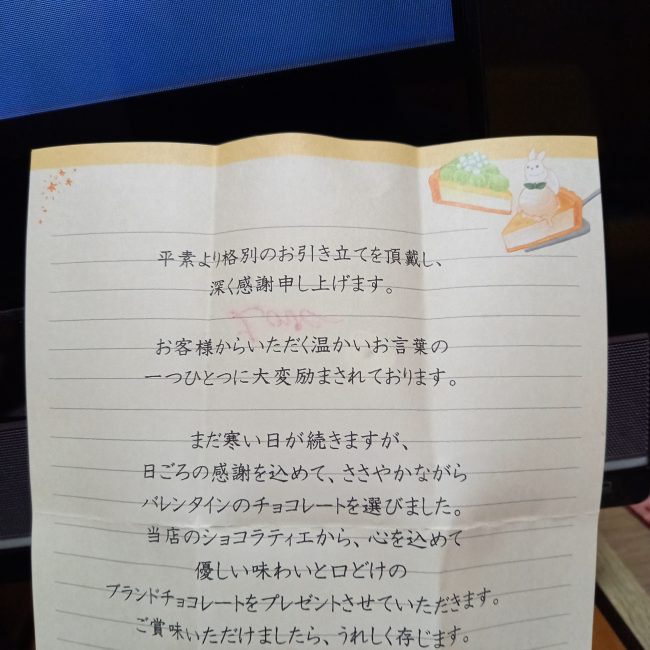 平素より格別のお引き立てを頂戴し、
深く感謝申し上げます。
お客様からいただく温かいお言葉の
一つひとつに大変励まされております。
まだ寒い日が続きますが、
日ごろの感謝を込めて、ささやかながら
バレンタインのチョコレートを選びました。
当店のショコラティエから、心を込めて
優しい味わいと口どけの
ブランドチョコレートをプレゼントさせていただきます。
ご賞味いただけましたら、うれしく存じます。